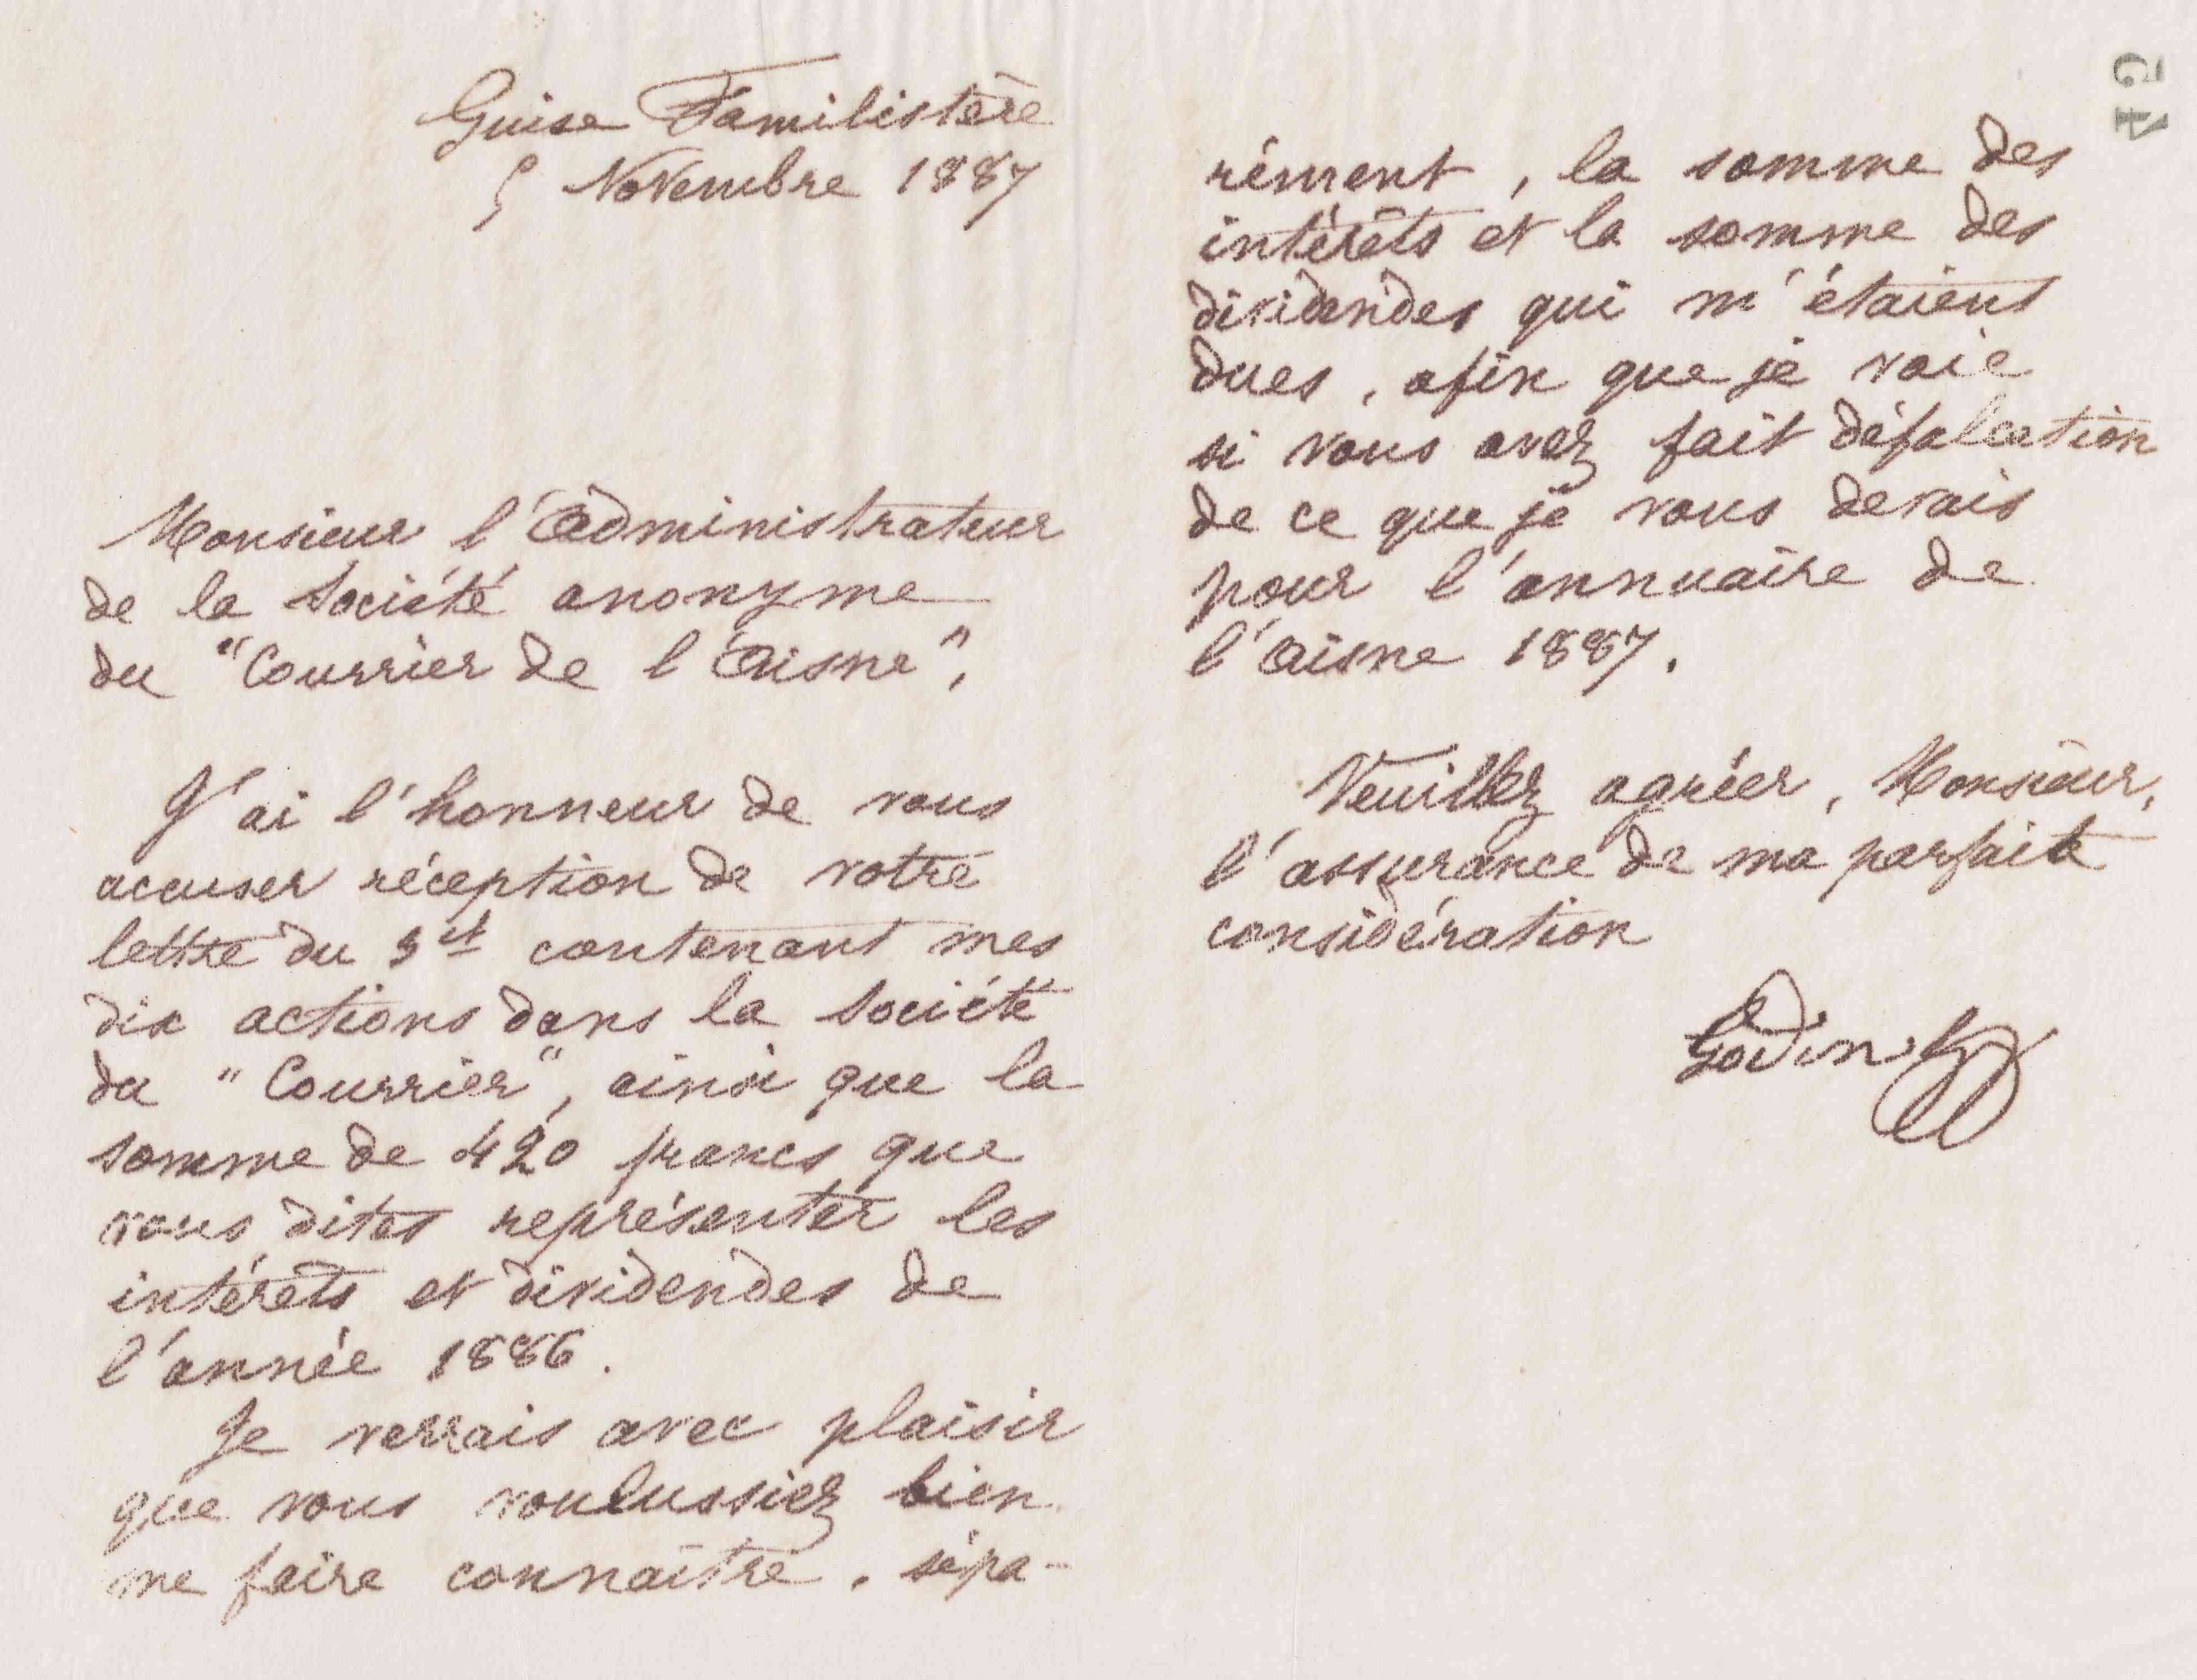 Guise Familistère
5 Novembre 1887
Monsieur l'Administrateur
de la Société anonyme
du "Courrier de l'Aisne",
J'ai l'honneur de vous
accuser réception de votre
lettre du 3 ct contenant mes
dix actions dans la Société
du "Courrier", ainsi que la
somme de 420 francs que
vous dites représenter les
intérêts et dividendes de
l'année 1886.
Je verrais avec plaisir
que vous voulussiez bien
me faire connaître, sépa-
rément, la somme des
intérêts et la somme des
dividendes qui m'étaient
dues, afin que je voie
si vous avez fait défalcation
de ce que je vous devais
pour l'annuaire de
l'Aisne 1887.
Veuillez agréer, Monsieur,
l'assurance de ma parfaite
considération
Godin
54